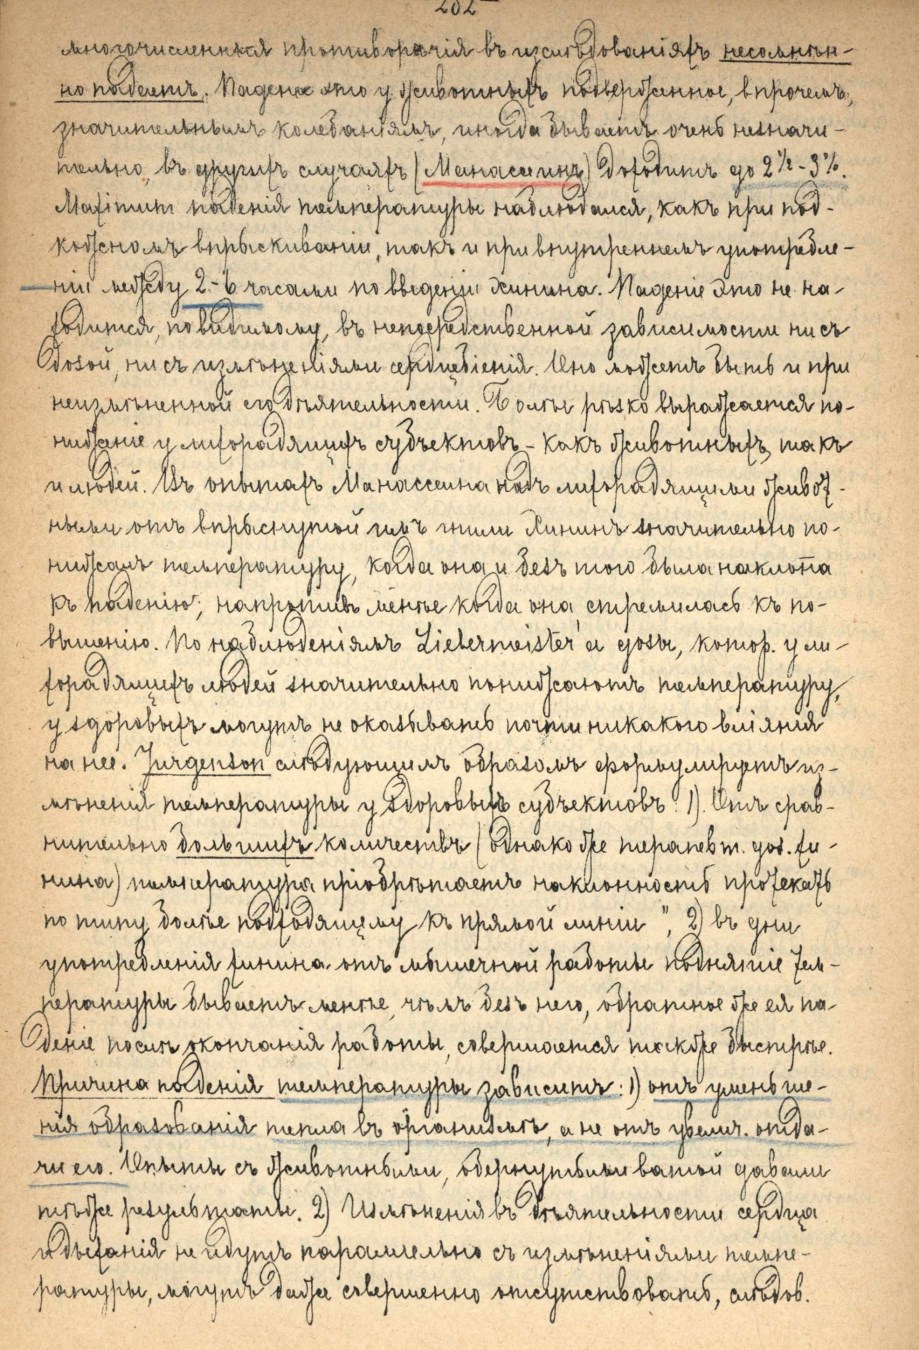 202
многочисленныя противорѣчія въ изслѣдованіяхъ несомнѣн-
но падаетъ. Паденіе это у животныхъ подверженное, впрочемъ,
значительнымъ колебаніямъ, иногда бываетъ очень незначи-
тельно, въ другихъ случаяхъ (Манассеинъ) доходитъ до 2½-3%.
Maximum паденія температуры наблюдался, какъ при под-
кожномъ впрыскиваніи, такъ и при внутреннемъ употребле-
ніи между 2-6 часами по введеніи Хинина. Паденіе это не на-
ходится, повидимому, въ непосредственной зависимости ни съ
дозой, ни съ измѣненіями сердцебіенія. Оно можетъ быть и при
неизмѣненной его дѣятельности. Болѣе рѣзко выражается по-
ниженіе у лихорадящихъ субъектовъ - какъ животныхъ, такъ
и людей. Въ опытахъ Манассеина надъ лихорадящими живот-
ными отъ впрыснутой имъ гнили Хининъ значительно по-
нижалъ температуру, когда она и безъ того была наклонна
къ паденію; напротивъ менѣе когда она стремилась къ по-
вышенію. По наблюденіямъ Liebermeister'а дозы, котор. у ли-
хорадящихъ людей значительно понижаютъ температуру,
у здоровыхъ могутъ не оказывать почти никакого вліянія
на нее. Jurgenson слѣдующимъ образомъ формулируетъ из-
мѣненія температуры у здоровыхъ субъектовъ: 1). Отъ срав-
нительно большихъ количествъ (однако же терапевт. доз. хи-
нина) температура пріобрѣтаетъ наклонность протекать
по типу болѣе подходящему къ прямой линіи", 2) въ дни
употребленія хинина отъ мышечной работы поднятіе тем-
пературы бываетъ менѣе, чѣмъ безъ него, обратное же ея па-
деніе послѣ окончанія работы, совершается также быстрѣе.
Причина паденія температуры зависитъ: 1) отъ уменьше-
нія образованія тепла въ организмѣ, а не отъ увелич. отда-
чи его. Опыты съ животными, обернутыми ватой давали
тѣже результаты. 2) Измѣненія въ дѣятельности сердца
и дыханія не идутъ параллельно съ измѣненіями темпе-
ратуры, могутъ даже совершенно отсутствовать, слѣдов.